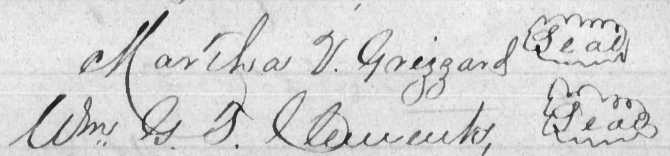 Martha V. Grizzard Seal
Wm. G. T. Clements, Seal